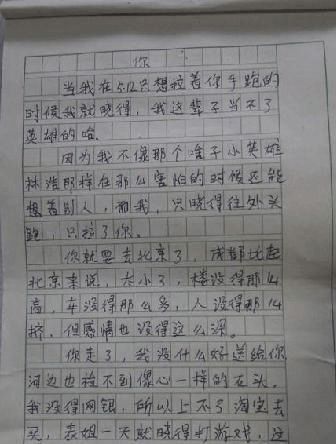 你
当我在512只想拉着你手跑的
时候我就晓得，我这辈子当不了
英雄的哈.
因为我不像那个啥子小英雄
林浩那样在那么害怕的时候还能
想着别人，而我，只晓得往外头
跑，只拉了你。
你就要去北京了，成都比起
北京来说，太小了，楼没得那么
高，车没得那么多，人没得那么
挤，但感情也没得这么深。
你走了，我没什么好送给你
河边也捡不到像心一样的石头。
我没得网银，所以上不了淘宝去
买，表姐一天就晓得打游戏，这